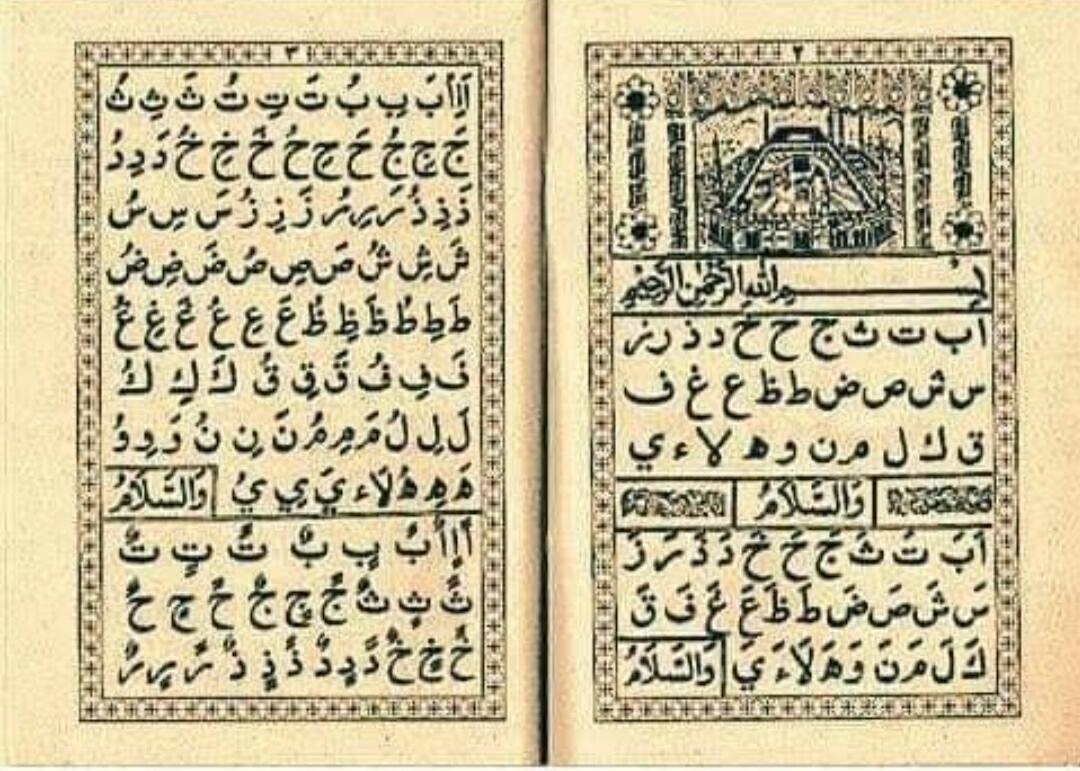 ٢
بِسْمِ اللهِ الرَّحْمٰنِ الرَّحِيْمِ
ا ب ت ث ج ح خ د ذ ر ز
س ش ص ض ط ظ ع غ ف
ق ك ل م ن و ه لا ء ي
وَالسَّلَامُ
اَ بَ تَ ثَ جَ حَ خَ دَ ذَ رَ زَ
سَ شَ صَ ضَ طَ ظَ عَ غَ فَ قَ
كَ لَ مَ نَ وَ هَ لَا ءَ يَ وَالسَّلَامُ
٣
اَ اِ اُ بَ بِ بُ تَ تِ تُ ثَ ثِ ثُ
جَ جِ جُ حَ حِ حُ خَ خِ خُ دَ دِ دُ
ذَ ذِ ذُ رَ رِ رُ زَ زِ زُ سَ سِ سُ
شَ شِ شُ صَ صِ صُ ضَ ضِ ضُ
طَ طِ طُ ظَ ظِ ظُ عَ عِ عُ غَ غِ غُ
فَ فِ فُ قَ قِ قُ كَ كِ كُ
لَ لِ لُ مَ مِ مُ نَ نِ نُ وَ وِ وُ
هَ هِ هُ لَا ء يَ يِ يُ وَالسَّلَامُ
اً اٍ اٌ بً بٍ بٌ تً تٍ تٌ
ثً ثٍ ثٌ جً جٍ جٌ حً حٍ حٌ
خً خٍ خٌ دً دٍ دٌ ذً ذٍ ذٌ رً رٍ رٌ